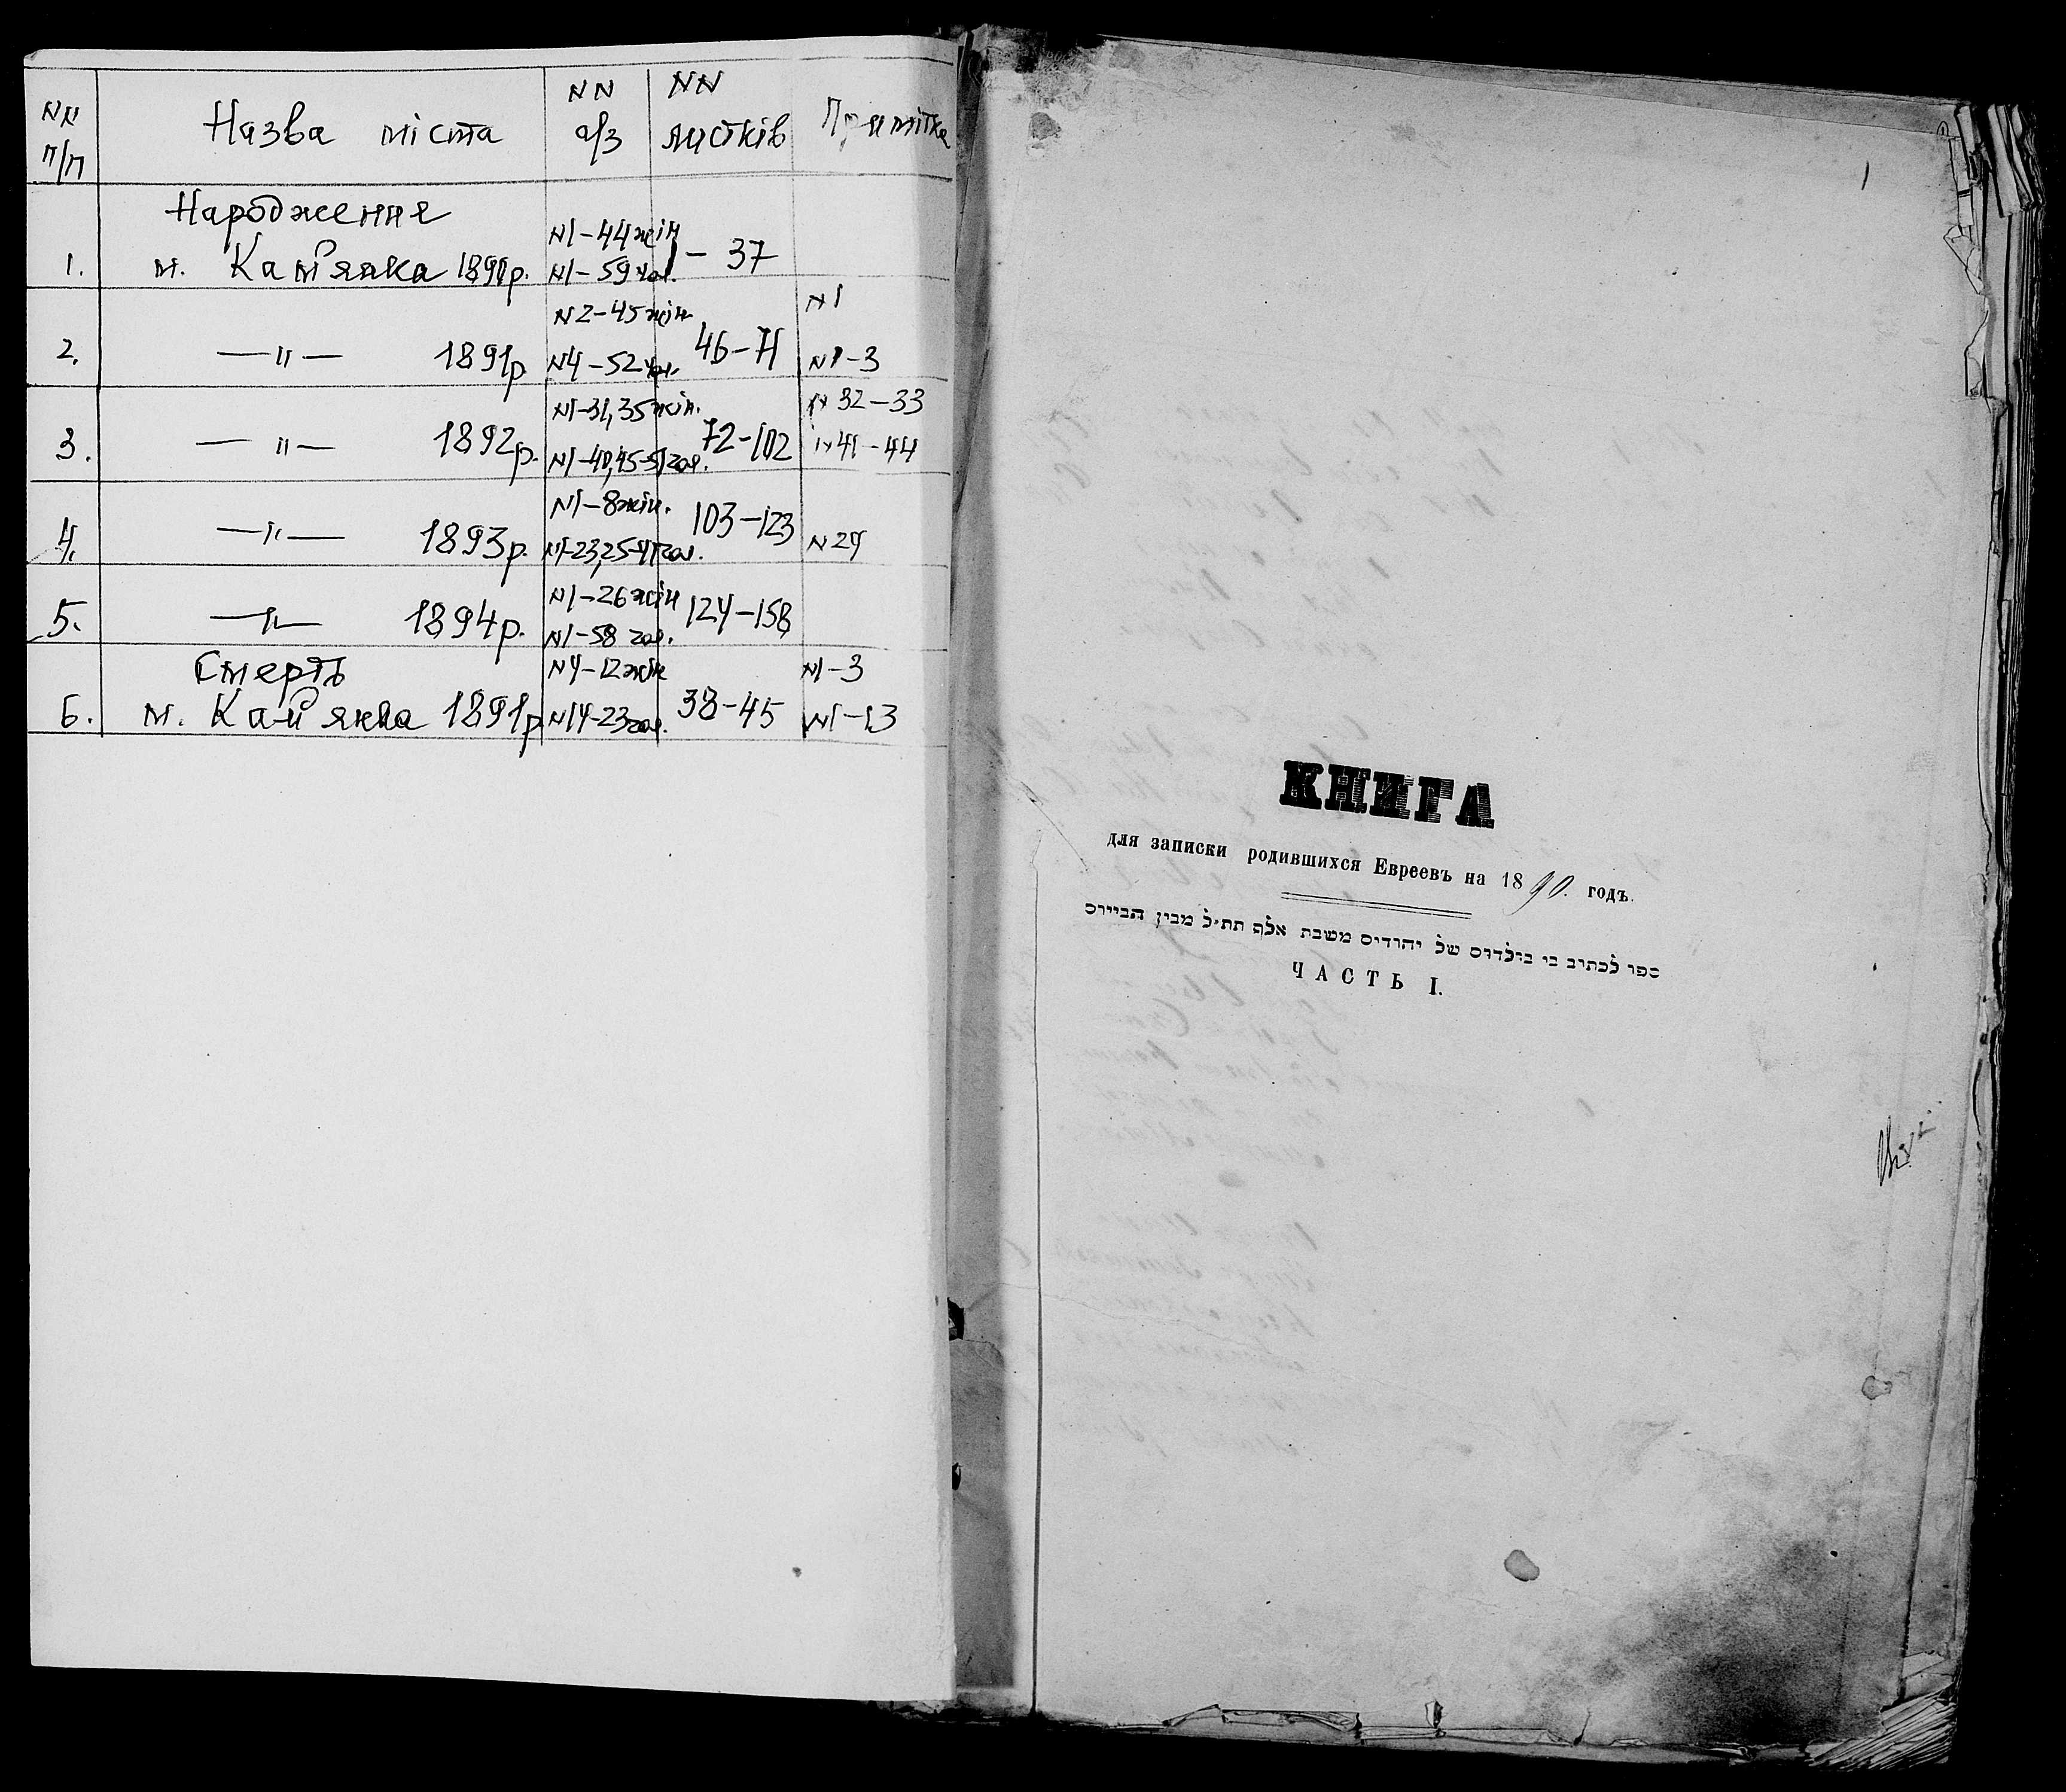 NN п/п Назва міста NN а/з NN листків Примітка
Народження
1. м. Кам'янка 1890р. N1-44 жін N1-59 чол. 1-37
2. —„— 1891р. N2-45 жін. N4-52 чол. 46-71 N1 N1-3
3. —„— 1892р. N1-31,35 жін. N1-40,45-51 чол. 72-102 N32-33 N41-44
4. —„— 1893р. N1-8 жін. N1-23,25-41 чол. 103-123 N24
5. —„— 1894р. N1-26 жін N1-58 чол. 124-158
Смерть
6. м. Кам'янка 1891р N4-12 жін N14-23 чол. 38-45 N1-3 N1-13
1
КНИГА
для записки родившихся Евреевъ на 1890. годъ.
ספו לכתיב בו בילדוס של יהודיס משבת אלף תת״ל מבין הביירוס
ЧАСТЬ I.